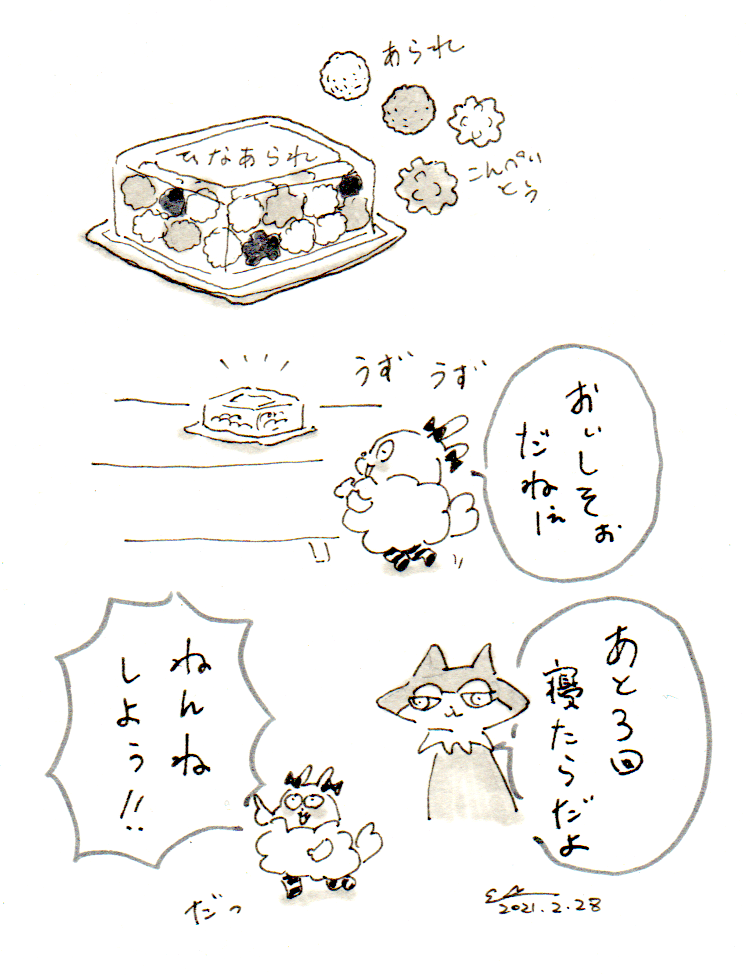 あられ
ひなあられ
こんぺい
とう
うず うず
おいしそぉ
だねぇ
あと3回
寝たらだよ
ねんね
しよう!!
だっ
2021.2.28